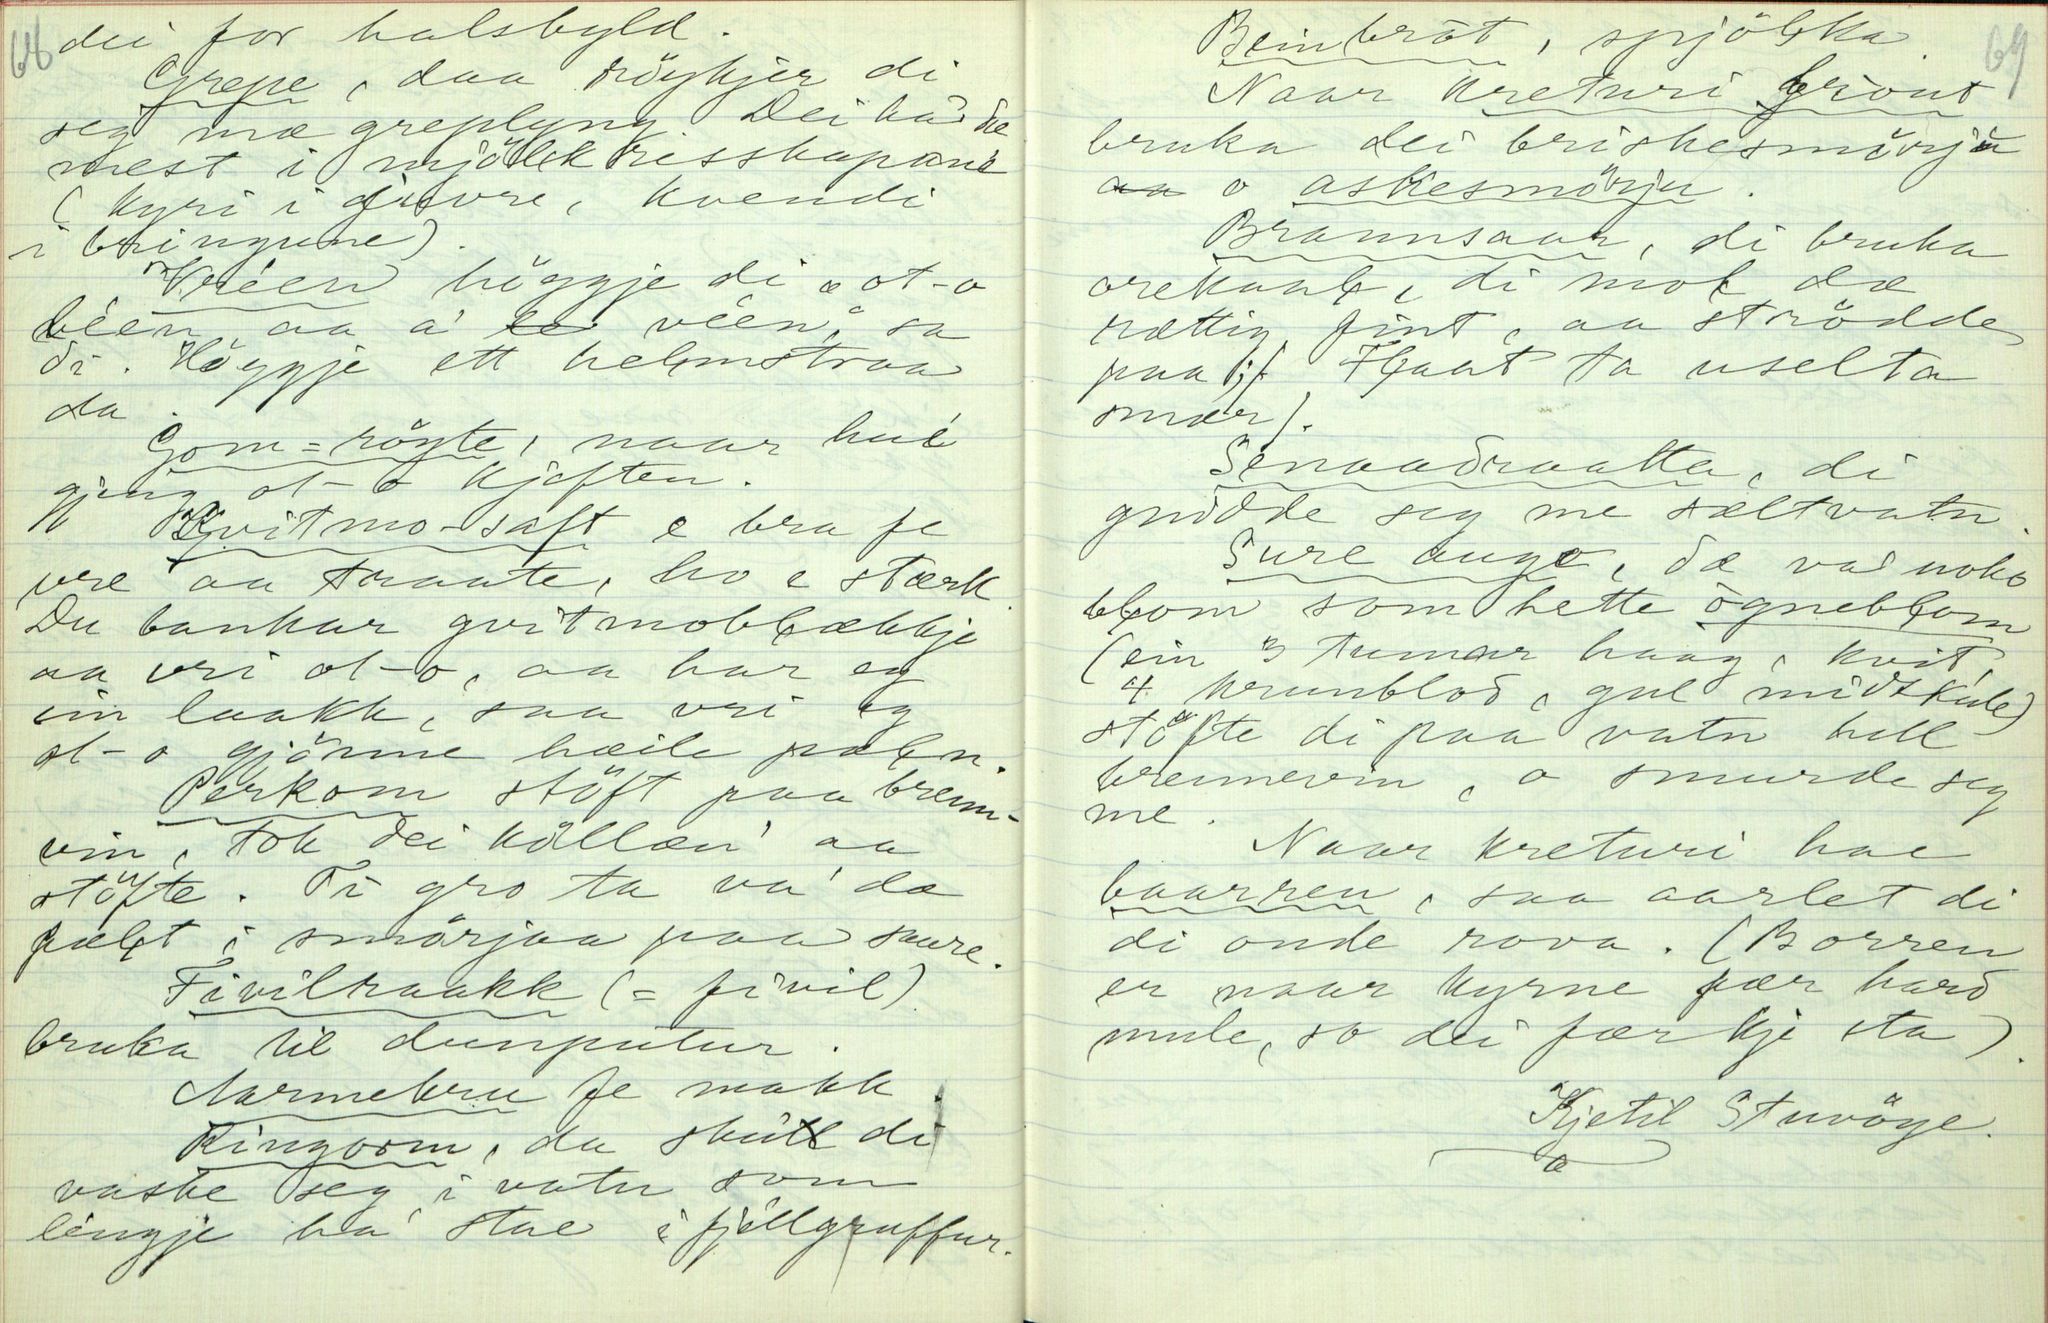 68
dei for halsbyld.
Grepe, daa röykjer di
seg mæ greplyng. Dei ha'de
mest i mjölkkrisskapane
(kyri i juvre, kvendi
i bringune).
Vréen höggje di "ot-o
béen aa a' véen," sa
di. Höggje ett helmstraa
da.
Gom-röyte, naar hue
gjeng ot-o kjeften.
Kvitmo-saft e bra fe
vre aa traate, ho e stærk.
Du bankar gvitmobblækkje
aa vri ot-o, aa har eg
ein laakk, saa vri eg
ot-o gjönne heile pæln.
Perkom stöft paa brenn-
vin, tok dei köllæn' aa
stöfte. Ti gro ta va' da
pælt i smörjaa paa saare.
Fivilraakk (= fivil)
bruka til dunputur.
Aarmebru fe makk.
Ringorm, da skull di
vaske seg i vatn som
lengje ha' stae i fjéllgruffur.
69
Beinbröt, spjölka.
Naar kreturi briout
bruka dei briskesmörju
o askesmörju.
Brannsaar, di bruka
orekaal, di mol dæ
rættig fint, aa strödde
paa (if. Flaat ta uselta
smær).
Senaadraatta, di
gnidde seg me sæltvatn.
Sure augo, dæ va' noko
blom som hette ögneblom
(ein 3 tumar haag, kvit,
4 krunblod, gul midtkule)
stöfte di paa vatn hell
brennevin, o smurde seg
me.
Naar kreturi hae
baarren, saa aarlet di
di onde rova. (Borren
er naar kyrne fær hard
mule, so dei fær kje sta).
Kjetil Stuvöye.